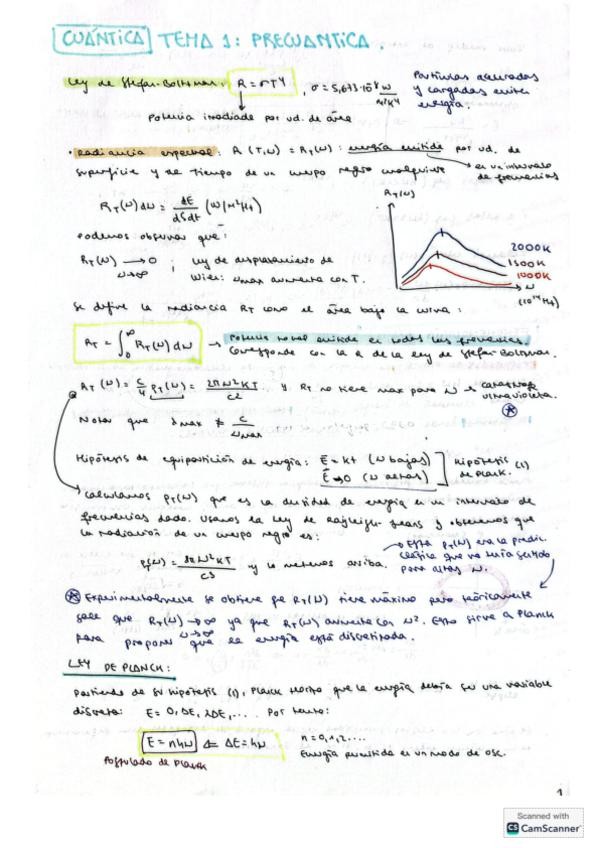 CUÁNTICA TEMA 1: PRECUANTICA.
Ley de Stefan-Boltzman: R = σT⁴, σ = 5,673·10⁻⁸ W/m²K⁴
Partículas aceleradas y cargadas emiten energía.
Potencia irradiada por ud. de área
• Radiancia espectral: R(T,ν) = R_T(ν): energía emitida por ud. de
superficie y de tiempo de un cuerpo negro cualquiera
→ en un intervalo de frecuencias
R_T(ν)dν = dE/dSdt (W/m²Hz)
Podemos observar que:
R_T(ν) → 0 ; Ley de desplazamiento de
ν→∞
Wien: νmax aumenta con T.
R_T(ν)
2000K
1500K
1000K
ν
(10¹⁴Hz)
Se define la radiancia R_T como el área bajo la curva:
R_T = ∫₀^∞ R_T(ν)dν → Potencia total emitida en todas las frecuencias.
Corresponde con la R de la ley de Stefan-Boltzman.
R_T(ν) = c/4 ρ_T(ν) = 2πν²KT/c² y R_T no tiene max para ν ≡ catástrofe ultravioleta.
Notar que λmax ≠ c/νmax
Hipótesis de equipartición de energía: Ē = kt (ν bajas)
Ē→0 (ν altas)
Hipótesis (1) de Plank.
Calculamos ρ_T(ν) que es la densidad de energía en un intervalo de
frecuencias dado. Usamos la Ley de Rayleigh-Jeans y obtenemos que
la radiación de un cuerpo negro es:
→ Esta ρ_T(ν) era la predic. clásica que no tenía sentido para altas ν.
ρ(ν) = 8πν²KT/c³ y lo metemos arriba.
⊛ Experimentalmente se obtiene que R_T(ν) tiene máximo pero teóricamente
sale que R_T(ν) → ∞ ya que R_T(ν) aumenta con ν². Esto sirve a Planck
ν→∞
para proponer que la energía está discretizada.
LEY DE PLANCK:
Partiendo de su hipótesis (1), Planck that que la energía debía ser una variable
discreta: E = 0, ΔE, 2ΔE, .... Por tanto:
E = nhν ⇐ ΔE = hν n = 0,1,2....
Energía permitida en un modo de osc.
Postulado de Planck
1
Scanned with
CS CamScanner